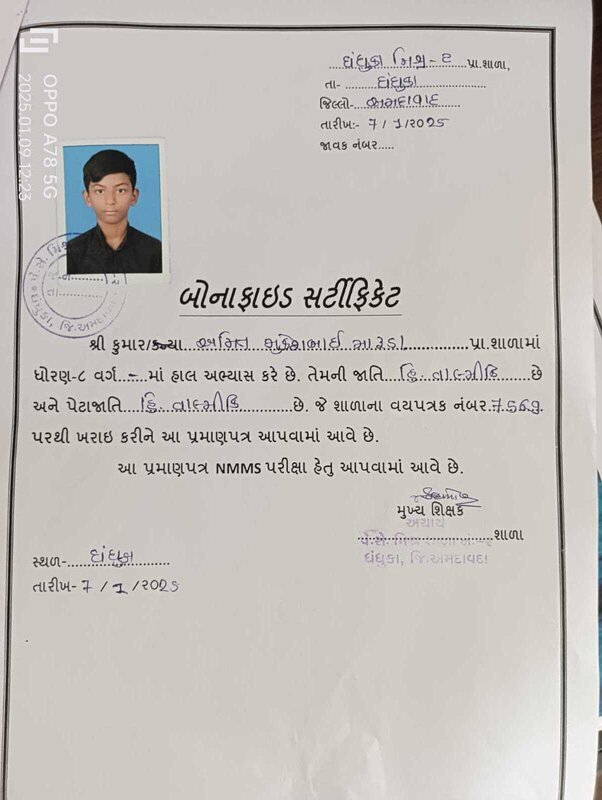 ધંધુકા મિશ્ર-૬ પ્રા.શાળા,
તા- ધંધુકા
જિલ્લો- અમદાવાદ
તારીખ:- 7/1/૨૦૨૫
જાવક નંબર.....
OPPO A78 5G
2025.01.09 12:23
બોનાફાઇડ સર્ટીફિકેટ
શ્રી કુમાર/કન્યા અમિત મુકેશભાઈ મારુડા પ્રા.શાળામાં
ધોરણ-૮ વર્ગ .-.. માં હાલ અભ્યાસ કરે છે. તેમની જાતિ હિ.વાલ્મીકિ છે
અને પેટાજાતિ હિ.વાલ્મીકિ છે. જે શાળાના વયપત્રક નંબર
પરથી ખરાઇ કરીને આ પ્રમાણપત્ર આપવામાં આવે છે.
આ પ્રમાણપત્ર NMMS પરીક્ષા હેતુ આપવામાં આવે છે.
મુખ્ય શિક્ષક
શાળા
પે.સે. મિશ્ર
ધંધુકા, જિ.અમદાવાદ
સ્થળ- ધંધુકા
તારીખ- 7/1/૨૦૨૫